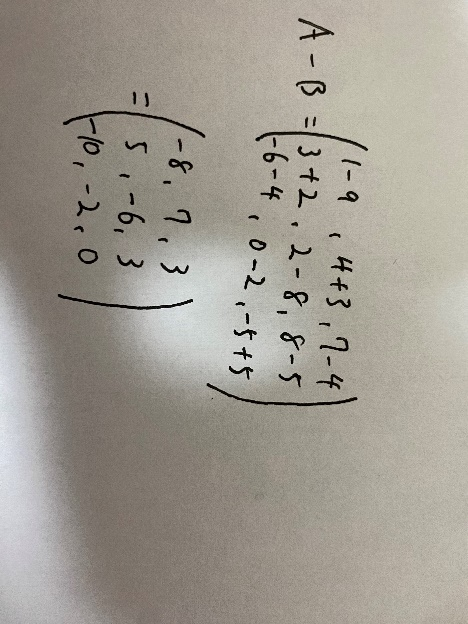 A - B = ( 1-9 , 4+3 , 7-4
3+2 , 2-8 , 8-5
-6-4 , 0-2 , -5+5 )
= ( -8 , 7 , 3
5 , -6 , 3
-10 , -2 , 0 )